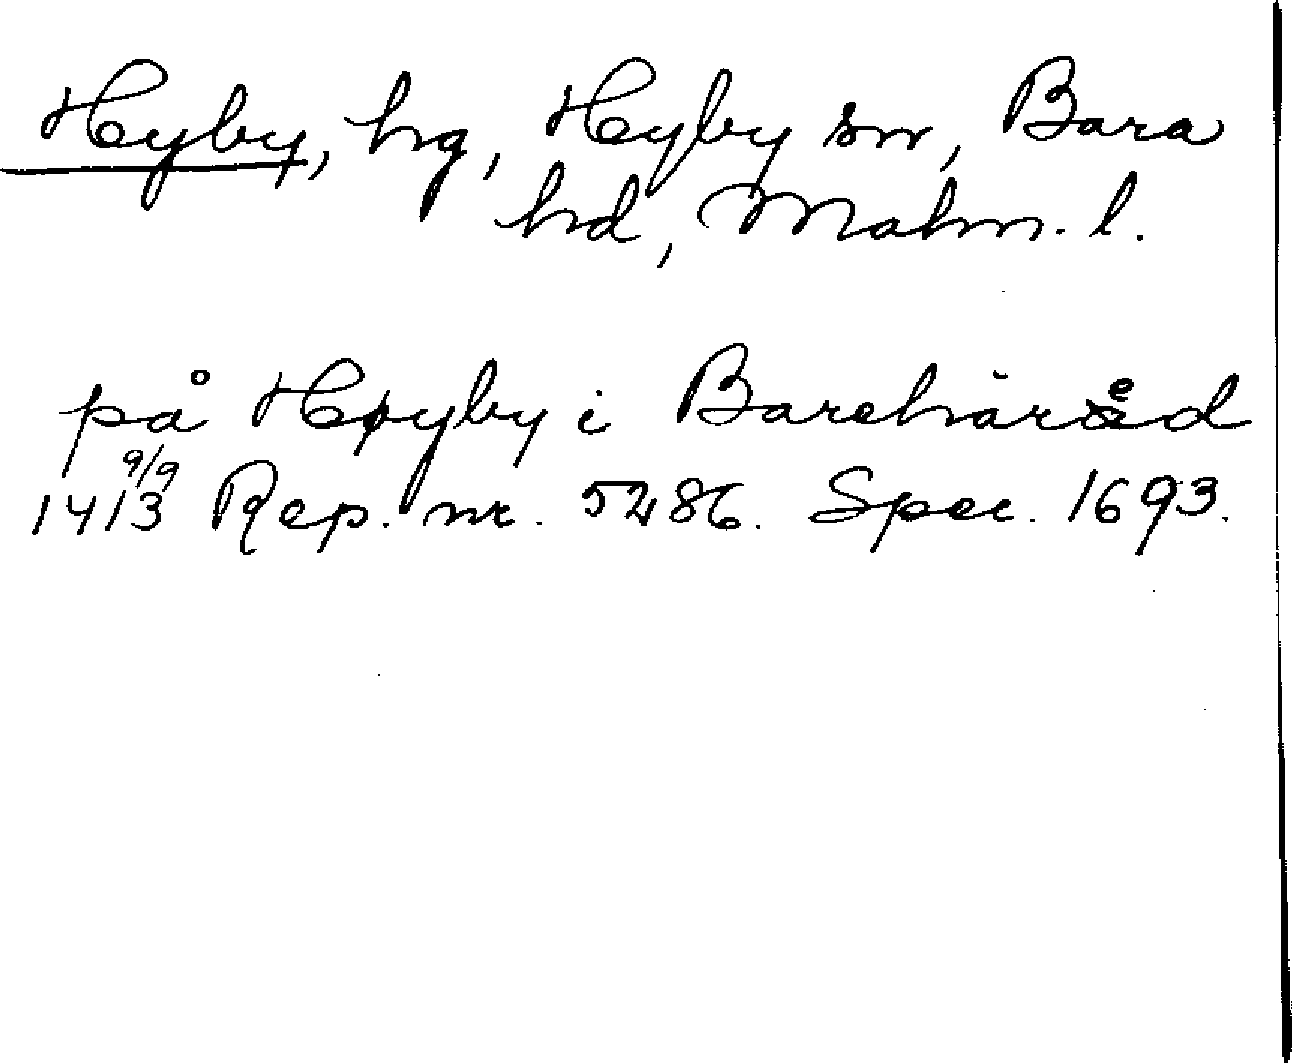 Hyby, hg, Hyby sn, Bara
hd, Malm. l.
på Høyby i Bareháræd
1413 9/9 Rep. nr. 5286. Spec. 1693.